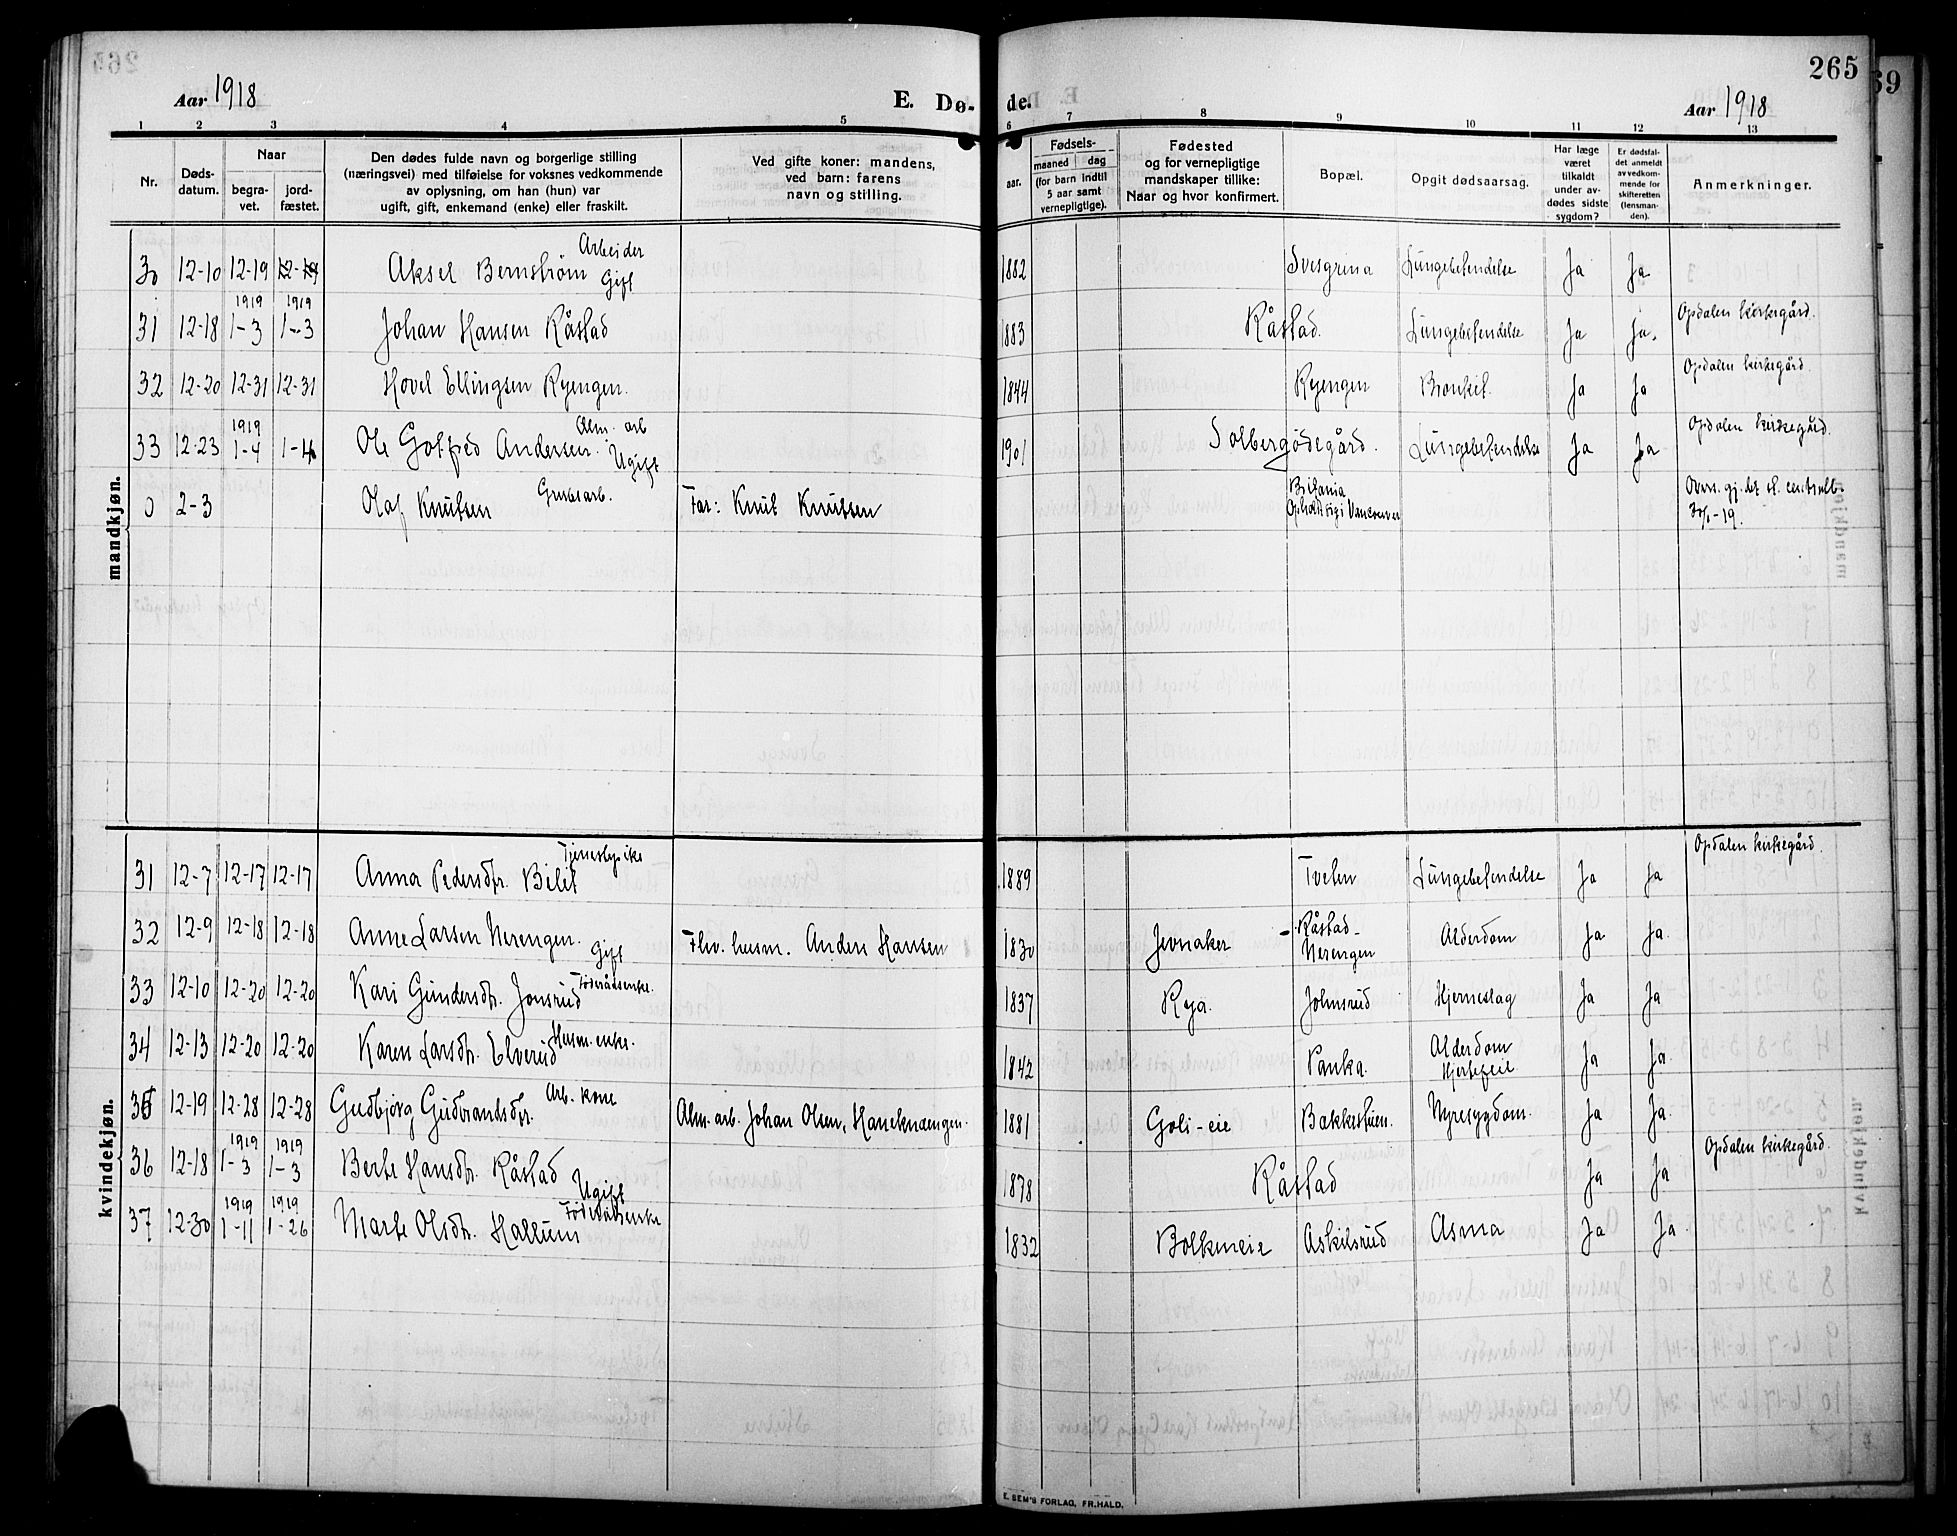 265
Aar 1918 E. Dø- de. Aar 1918
1 2 3 4 5 6 7 8 9 10 11 12 13
Nr.
Døds-
datum.
Naar
begra-
vet.
jord-
fæstet.
Den dødes fulde navn og borgerlige stilling
(næringsvei) med tilføielse for voksnes vedkommende
av oplysning, om han (hun) var
ugift, gift, enkemand (enke) eller fraskilt.
Ved gifte koner: mandens,
ved barn: farens
navn og stilling.
Fødsels-
aar.
maaned
dag
(for barn indtil
5 aar samt
vernepligtige).
Fødested
og for vernepligtige
mandskaper tillike:
Naar og hvor konfirmert.
Bopæl.
Opgit dødsaarsag.
Har læge
været
tilkaldt
under av-
dødes sidste
sygdom?
Er dødsfal-
det anmeldt
av vedkom-
mende for
skifteretten
(lensman-
den).
Anmerkninger.
mandkjøn.
30 12-10 12-19 12-19 Aksel Bernstrøm Arbeider Gift 1882 Svesgrina Lungebetendelse Ja Ja
31 12-18 1919 1-3 1919 1-3 Johan Hansen Råstad 1883 Råstad. Lungebetendelse Ja Ja. Opdalen kirkegård.
32 12-20 12-31 12-31 Hovel Ellingsen Ryengen. 1844 Ryengen Bronkit. Ja Ja Opdalen kirkegård.
33 12-23 1919 1-4 1-4 Ole Gotfred Andersen. Alm. arb Ugift 1901 Solbergødegård. Lungebetendelse Ja Ja Opdalen kirkegård.
0 2-3 Olaf Knutsen Grubearb. Far: Knut Knutsen Britania Opholdt sig i Vancouver
kvindekjøn.
31 12-7 12-17 12-17 Anna Pedersdtr. Bilit Tjenestepike 1889 Tveten Lungebetendelse Ja Ja Opdalen kirkegård.
32 12-9 12-18 12-18 Anne Larsen Nerengen. Gift Fhv. husm. Anders Hansen 1830 Jevnaker Råstad-Nerengen Alderdom Ja Ja.
33 12-10 12-20 12-20 Kari Gundersdtr. Jonsrud Føderådsenke. 1837 Rya. Johnsrud Hjerneslag Ja Ja
34 12-13 12-20 12-20 Karen Larsdtr. Elverud Husm. enke. 1842 Panka. Alderdom Hjertefeil Ja Ja.
35 12-19 12-28 12-28 Gudbjørg Gudbrandsdtr. Arb. kone Alm. arb. Johan Olsen, Haneknæengen. 1881 Goli-eie Bakkestuen. Nyresygdom. Ja Ja.
36 12-18 1919 1-3 1919 1-3 Berte Hansdtr. Råstad Ugift 1878 Råstad Ja Ja Opdalen kirkegård.
37 12-30 1919 1-11 1919 1-26 Marte Olsdtr. Hallum Føderådsenke 1832 Bolkeneie Askilsrud Asma Ja Ja
E. SEM'S FORLAG, FR.HALD.